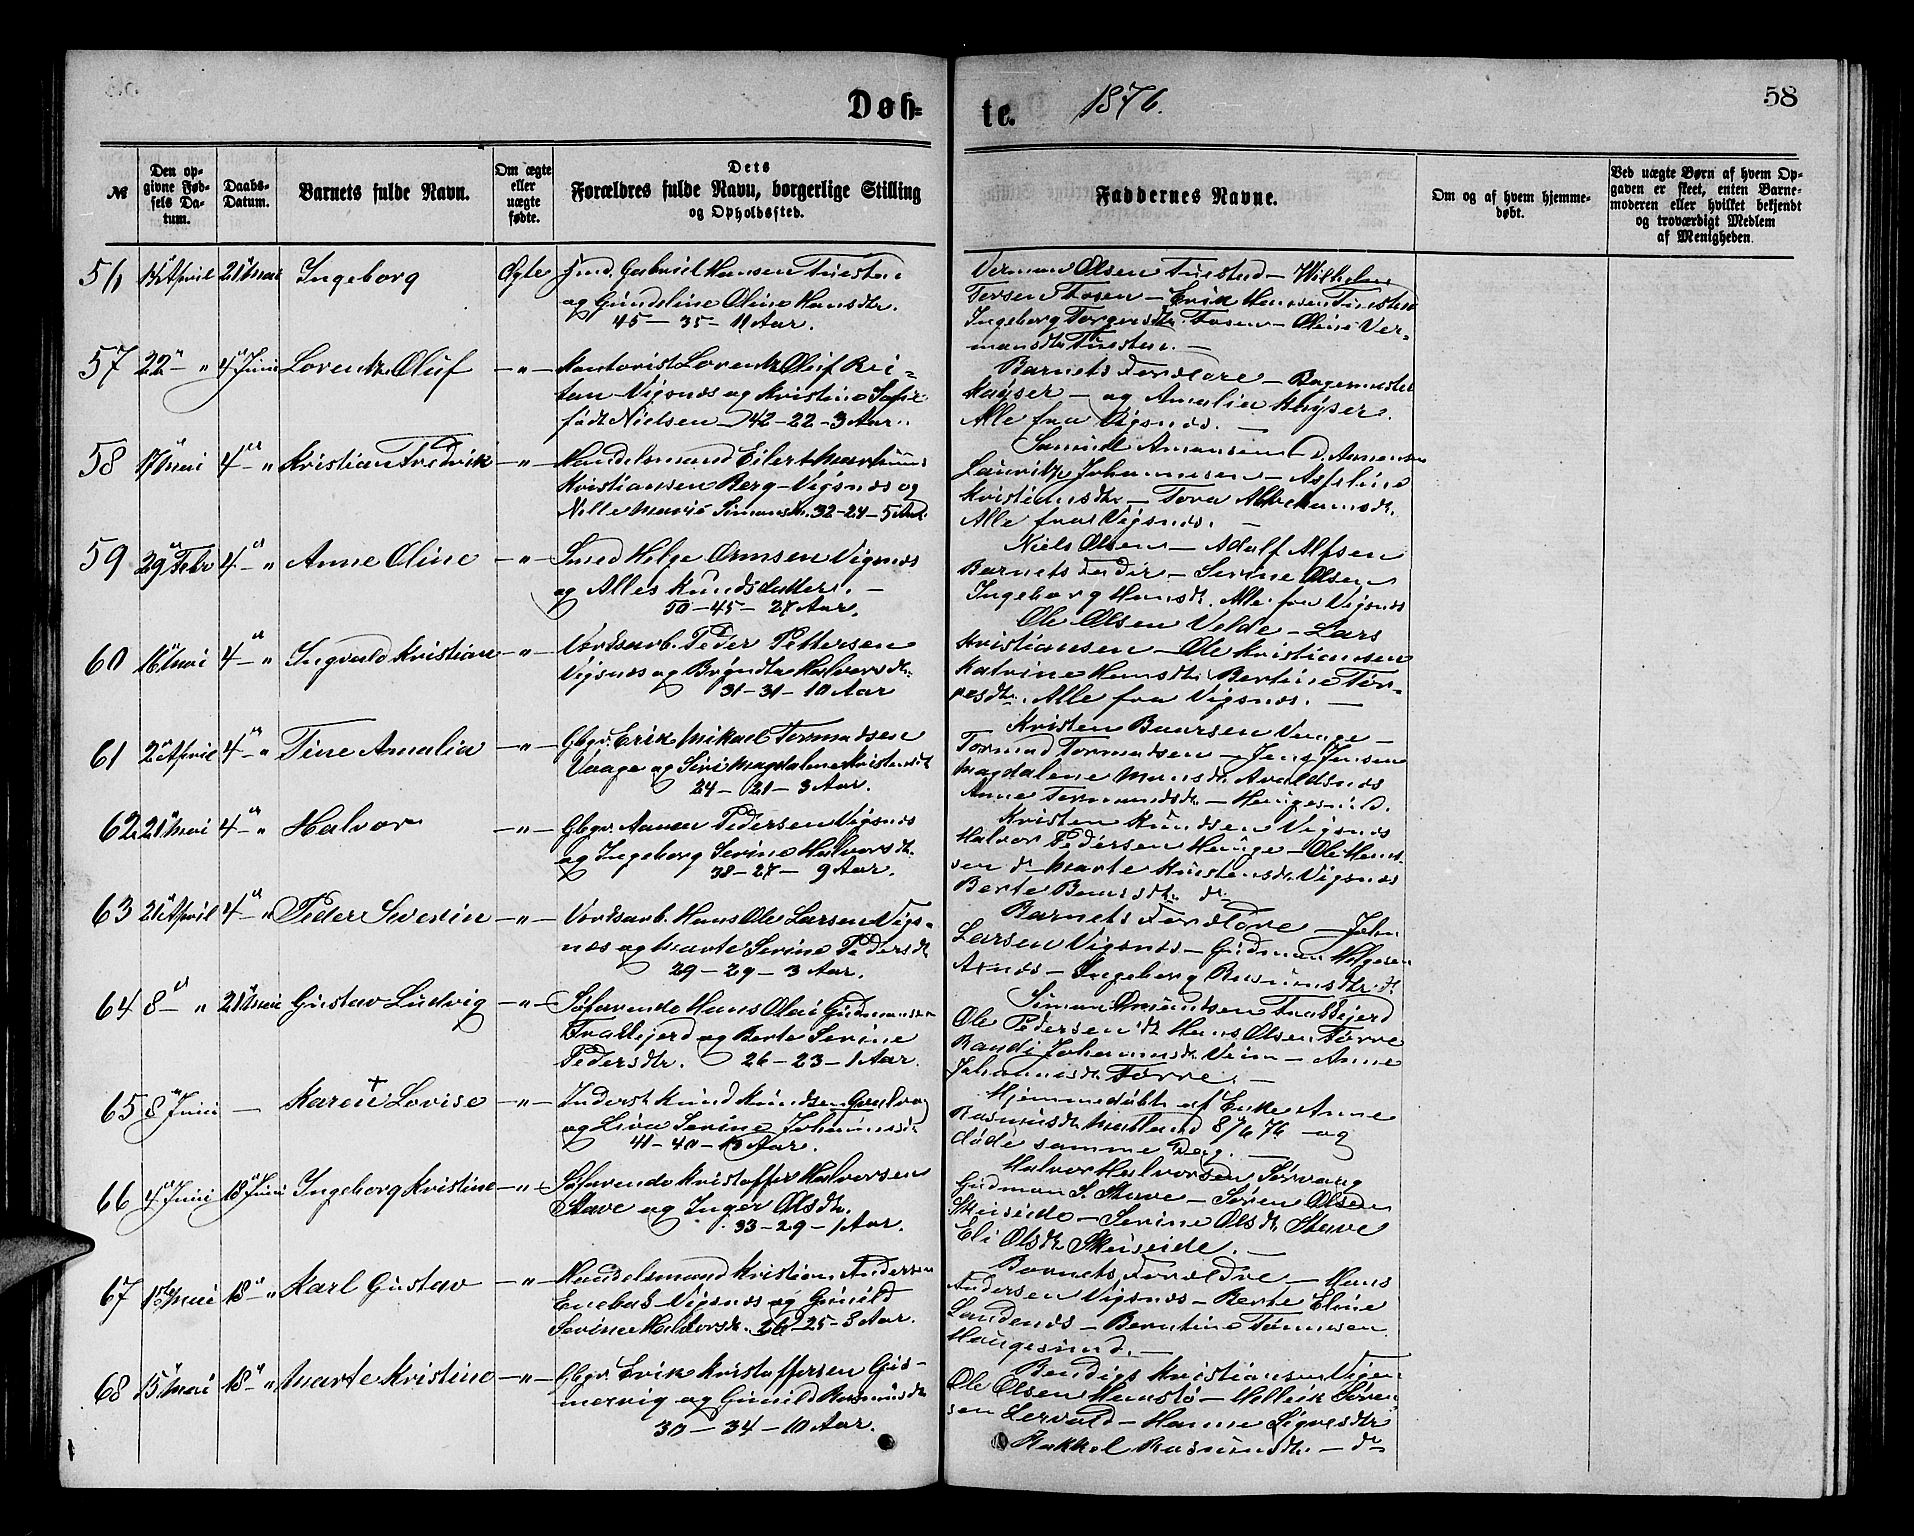 Døb=
te. 1876.
58
№
Den op-
givne Fød-
sels Da-
tum.
Daabs-
Datum.
Barnets fulde Navn.
Om ægte
eller
uægte
fødte.
Dets
Forældres fulde Navn, borgerlige Stilling
og Opholdssted.
Faddernes Navne.
Om og af hvem hjemme-
døbt.
Ved uægte Børn af hvem Op-
gaven er skeet, enten Barne-
moderen eller hvilket bekjendt
og troværdigt Medlem
af Menigheden.
April 21 Mai Ingeborg Ægte Gabriel Hansen
og Gundeline Oline Hansdtr.
45 — 35 — 11 Aar.
Olsen — Wilhelm
Torsen Fosen — Erik Hansen
Ingeborg Torgersdtr. Fosen — Oline Ver-
mansdtr
57 22 — " 4 Juni Lorentz Oluf — " — Kontorist Lorentz Oluf Rei-
tan Vigsnes og Kristine Sofie
født Nielsen — 42 — 22 — 3 Aar.
Barnets Forældre — Bagermester
Kayser — og Amalia Kayser.
Alle fra Vigsnes. —
58 17 Mai 4 — " Kristian Fredrik — " — Handelsmand Eilert Martinus
Kristiansen Berg — Vigsnes og
Nille Marie Simonsdtr. 32 — 24 — 5 Aar.
Samuel Amansen —
Lauritz Johannesen — Asseline
Kristiansdtr — Tora Abrahamsdtr.
Alle fra Vigsnes. —
59 29 Febr 4 — " Anne Oline — " — Smed Helge Ormsen Vigsnes
og Alles Knudsdatter. —
50 — 45 — 27 Aar.
Niels Olsen — Adolf Alfsen
Barnets Fader — Serine Olsen
Ingeborg Hansdtr. Alle fra Vigsnes
60 16 Mai 4 — " Ingvald Kristian — " — Verdsarb. Peder Pettersen
Vigsnes og Halvorsdtr.
31 — 31 — 10 Aar
Ole Olsen Velde — Lars
Kristiansen — Ole Kristiansen
Katrine Hansdtr. Bertine Tor-
Alle fra Vigsnes. —
61 2 April 4 — " Tine Amalia — " — Gbgr. Erik Mikael Tormodsen
Vaage og Siri Magdalene Kristensdtr
24 — 21 — 3 Aar.
Kristen Baarsen Vaage —
Tormod Tormodsen — Jens Jensen
Magdalene Mansdtr. Avaldsnes
Anne Tormondsdtr — Haugesund.
62 21 Mai 4 — " Halvor — " — Gbgr. Aanen Pedersen Vigsnes
og Ingeborg Serine Halvorsdtr.
38 — 27 — 9 Aar.
Kristen Knudsen Vigsnes
Halvor Pedersen Hauge — Ole Hans-
sen do Marte Kristensdtr. Vigsnes
Berte do
63 21 April 4 — " Peder Severin — " — Verdsarb. Hans Ole Larsen Vigs-
nes og Marte Serine Pedersdtr
29 — 29 — 3 Aar.
Barnets Forældre — John
Larsen Vigsnes — Gudman Helgesen
— Ingeborg Rasmusdtr. do
64 8 — " 21 Mai Gustav Ludvig — " — Søfarende Hans Olai Gudmansen
og Berte Serine
Pedersdtr. 26 — 23 — 1 Aar.
Simon Omundsen
Ole Pedersen do Hans Olsen Førre
Randi Johannesdtr. — Anne
Johannesdtr. Førre. —
65 8 Juni — Karen Lovise — " — Inderst Knud Knudsen
og Liva Serine Johannesdtr
41 — 40 — Aar.
Hjemmedøbt af Enke Anne
Rasmusdtr. 8/6 76 — og
døde samme Dag. —
66 4 Juni 18 Juni Ingeborg Kristine — " — Søfarende Kristoffer Halvorsen
Stave og Inger Olsdtr.
33 — 29 — 1 Aar.
Halvor Halvorsen Sørvaag
Gudman S. Stave — Søren Olsen
Skeiseide — Serine Olsdtr. Stave
Eli Olsdtr Skeiseide. —
67 1ste Mai 18 — " Karl Gustav — " — Handelsmand Kristian Andersen
Enebak Vigsnes og Gunild
Serine Halvorsdtr. 26 — 25 — 3 Aar.
Barnets Forældre — Hans
Andersen Vigsnes — Berte Elvine
— Berntine Tønnesen
Haugesund. —
68 15 Mai 18 — " Marte Kristine — " — Gbgr. Erik Kristoffersen Gis-
mervig og Gunild Rasmusdtr
30 — 34 — 10 Aar.
Bendigt Kristiansen
Ole Olsen — Helleik Søren-
sen — Hanne Sigvesdtr
Rakkel Rasmusdtr. — do